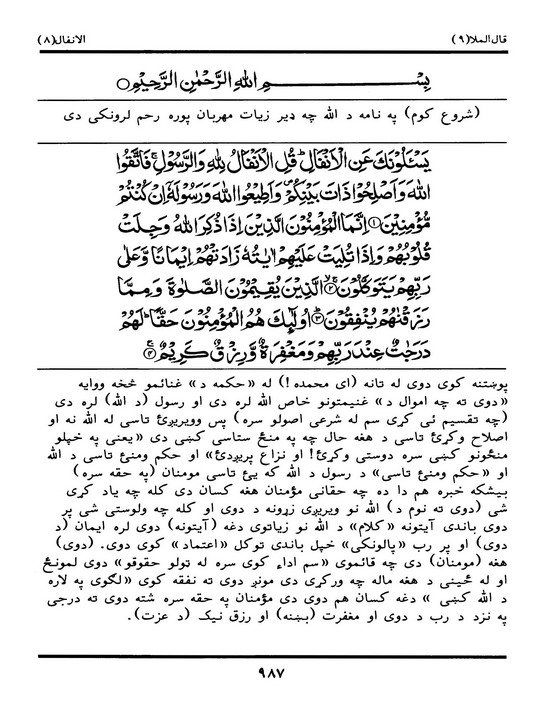 قال الملا(۹) الانفال(۸)
بِسْمِ اللهِ الرَّحْمٰنِ الرَّحِيْمِ○
(شروع کوم) په نامه د الله چه ډیر زیات مهربان پوره رحم لرونکی دی
يَسْـَٔلُوْنَكَ عَنِ الْاَنْفَالِ ؕ قُلِ الْاَنْفَالُ لِلّٰهِ وَالرَّسُوْلِ ۚ فَاتَّقُوا
اللهَ وَاَصْلِحُوْا ذَاتَ بَيْنِكُمْ ۪ وَاَطِيْعُوا اللهَ وَرَسُوْلَهٗۤ اِنْ كُنْتُمْ
مُّؤْمِنِيْنَ ① اِنَّمَا الْمُؤْمِنُوْنَ الَّذِيْنَ اِذَا ذُكِرَ اللهُ وَجِلَتْ
قُلُوْبُهُمْ وَاِذَا تُلِيَتْ عَلَيْهِمْ اٰيٰتُهٗ زَادَتْهُمْ اِيْمَانًا وَّعَلٰى
رَبِّهِمْ يَتَوَكَّلُوْنَ ② الَّذِيْنَ يُقِيْمُوْنَ الصَّلٰوةَ وَمِمَّا
رَزَقْنٰهُمْ يُنْفِقُوْنَ ③ اُولٰٓئِكَ هُمُ الْمُؤْمِنُوْنَ حَقًّا ؕ لَهُمْ
دَرَجٰتٌ عِنْدَ رَبِّهِمْ وَمَغْفِرَةٌ وَّرِزْقٌ كَرِيْمٌ ④
پوښتنه کوی دوی له تانه (ای محمده !) له «حکمه د» غنائمو څخه ووایه
«دوی ته چه اموال د» غنیمتونو خاص الله لره دی او رسول (د الله) لره دی
(چه تقسیم ئی کړی سم له شرعی اصولو سره) پس وویریږئ تاسی له الله نه او
اصلاح وکړئ تاسی د هغه حال چه په منځ ستاسی کښی دی «یعنی په خپلو
منځونو کښی سره دوستی وکړئ! او نزاع پریږدئ» او حکم ومنئ تاسی د الله
او «حکم ومنئ تاسی» د رسول د الله که یئ تاسی مومنان (په حقه سره)
بیشکه خبره هم دا ده چه حقانی مؤمنان هغه کسان دی کله چه یاد کړی
شی (دوی ته نوم د) الله نو ویریږی زړونه د دوی او کله چه ولوستی شی پر
دوی باندی آیتونه «کلام» د الله نو زیاتوی دغه (آیتونه) دوی لره ایمان (د
دوی) او پر رب «پالونکی» خپل باندی توکل «اعتماد» کوی دوی. (دوی)
هغه (مومنان) دی چه قائموی «سم اداء کوی سره له تولو حقوقو» دوی لمونځ
او له ځینی د هغه ماله چه ورکړی دی مونږ دوی ته نفقه کوی «لګوی په لاره
د الله کښی » دغه کسان هم دوی دی مؤمنان په حقه سره شته دوی ته درجی
په نزد د رب د دوی او مغفرت (بښنه) او رزق نیک (د عزت).
۹۸۷